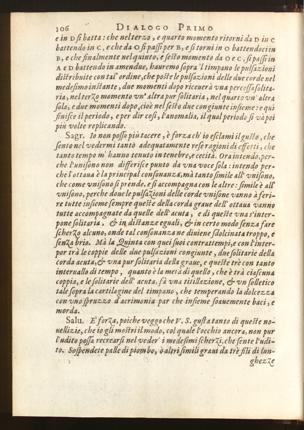 106 DIALOGO PRIMO
e in D si batta: che nel terzo, e quarto momento ritorni da D in C
battendo in C, e che da O si passi per B, e si torni in O battendoci in
B, e che finalmente nel quinto, e sesto momento da O e C, si passi in
A e D battendo in amendue, hauremo sopra 'l timpano le pulsazioni
distribuite con tal'ordine, che poste le pulsazioni delle due corde nel
medesimo instante, due momenti dopo riceuerà una percossa solita-
ria, nel terzo momento un'altra pur solitaria, nel quarto un'altra
sola, e due momenti dopo, cioè nel sesto due congiunte insieme: e qui
finisce il periodo, e per dir così, l'anomalia, il qual periodo si và poi
più volte replicando.
Sagr. Io non posso più tacere, è forza ch'io esclami il gusto, che
sento nel vedermi tanto adequatamente rese ragioni di effetti, che
tanto tempo m'hanno tenuto in tenebre, e cecità. Ora intendo, per-
che l'unisono non differisce punto da una voce sola: intendo per-
che l'ottaua è la principal consonanza, mà tanto simile all'unisono,
che come unisono si prende, e si accompagna con le altre: simile è all'
unisono, perche doue le pulsazioni delle corde unisone vanno à feri-
re tutte insieme sempre queste della corda graue dell'ottaua vanno
tutte accompagnate da quelle dell'acuta, e di queste una s'inter-
pone solitaria, & in distanze eguali, & in certo modo senza fare
scherzo alcuno, onde tal consonanza ne diuiene sdolcinata troppo, e
senza brio. Mà la Quinta con quei suoi contrattempi, e con l'inter-
por trà le coppie delle due pulsazioni congiunte, due solitarie della
corda acuta, & una pur solitaria della graue, e queste trè con tanto
interuallo di tempo, quanto è la metà di quello, che è trà ciascuna
coppia, e le solitarie dell'acuta, fà una titillazione, & un solletico
tale sopra la cartilagine del timpano, che temperando la dolcezza
con uno spruzzo d'acrimonia par che insieme soauemente baci, e
morda.
Salu. E' forza, poiche veggo che V. S. gusta tanto di queste no-
uellizie, che io gli mostri il modo, col quale l'occhio ancora, non pur
l'udito possa recrearsi nel veder i medesimi scherzi, che sente l'udi-
to. Sospendete palle di piombo, ò altri simili graui da trè fili di lun-
ghezze